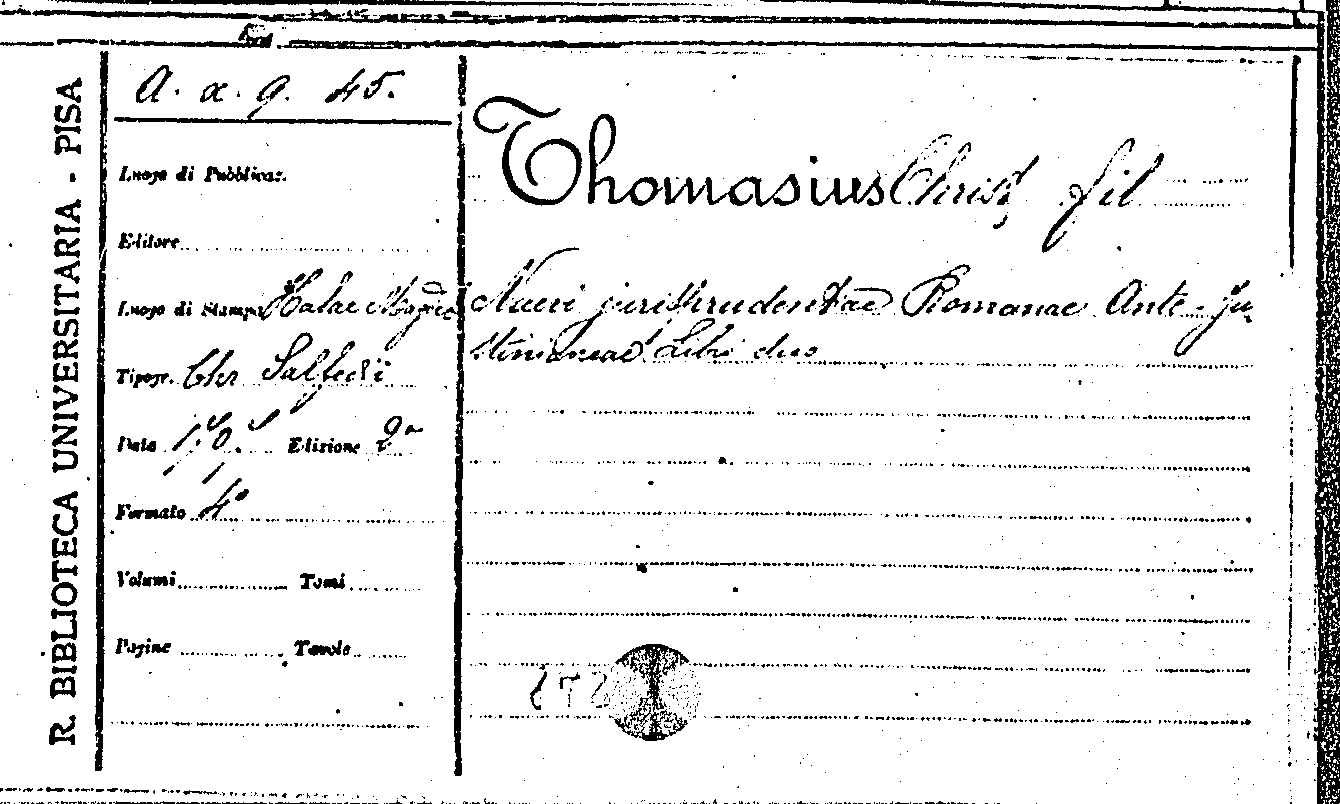 R. BIBLIOTECA UNIVERSITARIA - PISA
a. x. 9. 45.
Luogo di Pubblicaz.
Editore
Luogo di Stampa Halae Magdeb
Tipogr. Chr Salfedi
Data Edizione 2a
Formato 4°
Volumi Tomi
Pagine Tavole
Thomasius Christ fil
Naevi jurisprudentiae Romanae Ante-Ju
stinianeae Libri duo